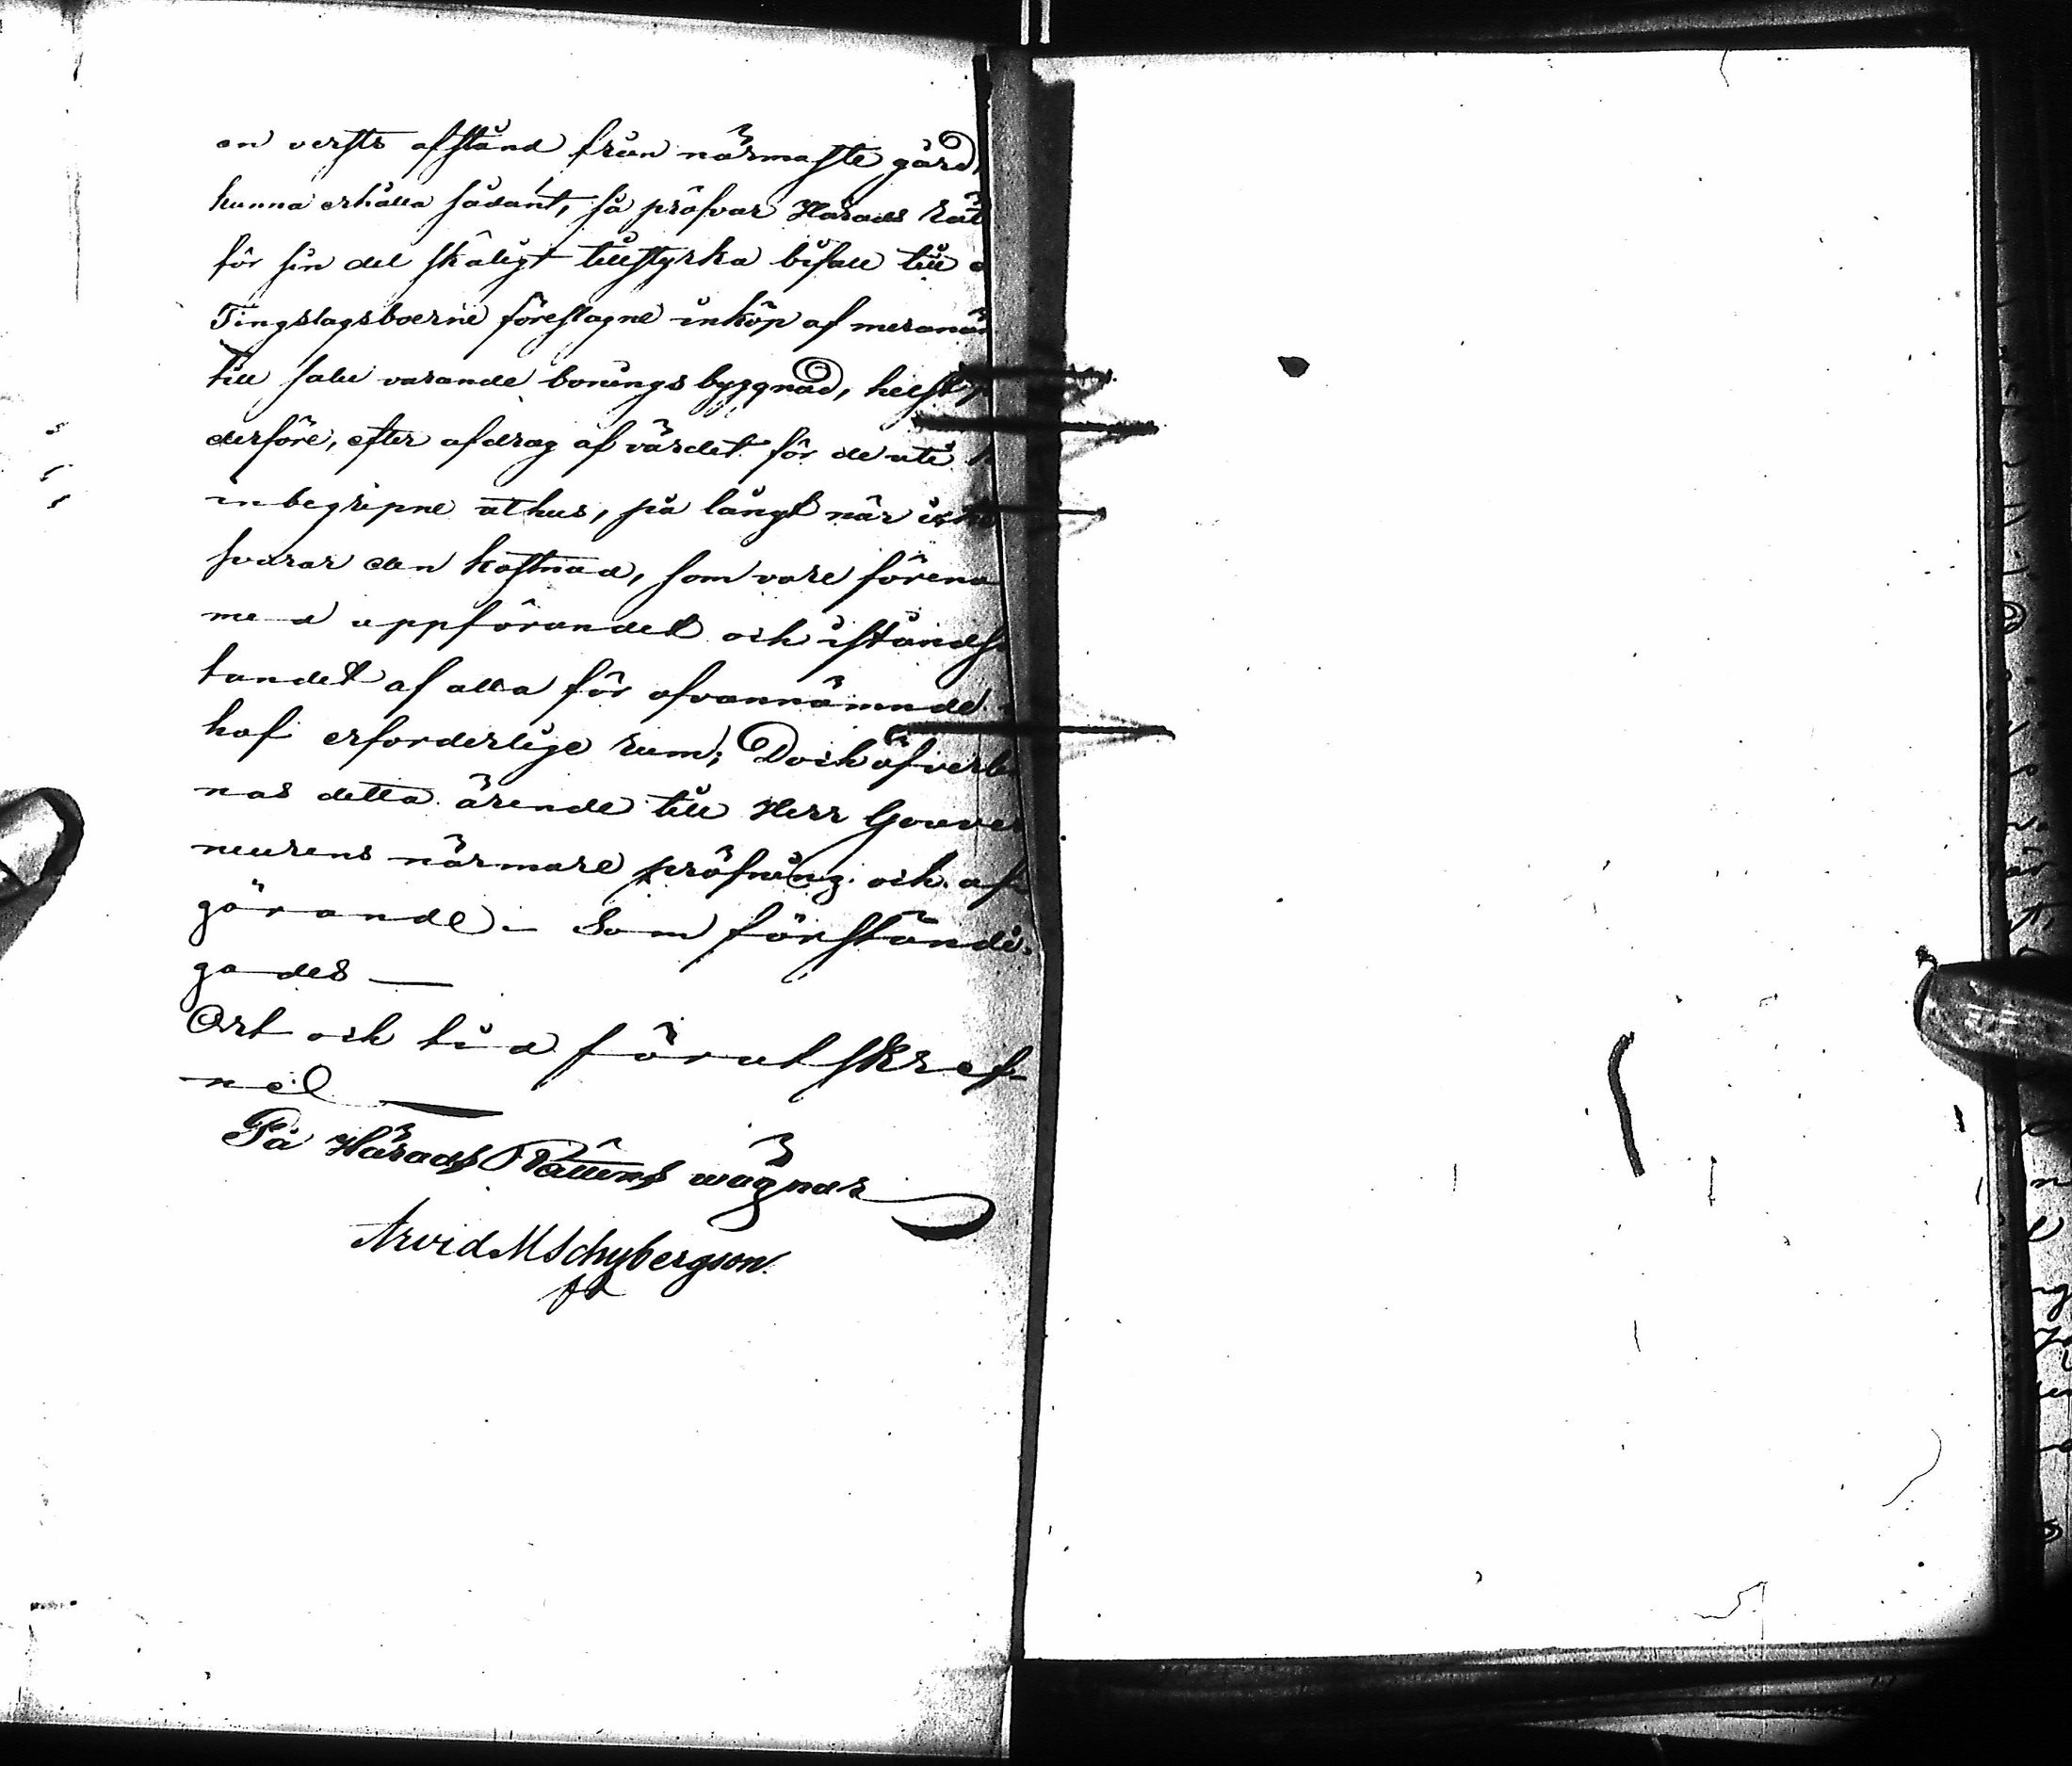 en versts afstånd från närmaste gård,
kunna erhålla sådant, så pröfvar Härads Rät
för sin del skäligt tillstyrka bifall till
Tingslagsboerne föreslagne inköp af meranäm
till salu varande boningsbyggnad, helst
derföre, efter afdrag af värdet för de uti
inbegripne uthus, på långt när icke
svarar den kostnad, som vore förena
med uppförandet och iståndsä
tandet af alla för ofvannämnde
hof erforderlige rum; Dock öfverle
nas detta ärende till Herr Gouver
neurens närmare pröfning och af-
görande. – Som förständi-
gades —
Ort och tid förutskref-
ne. —
På Härads Rättens wägnar
Arvid M Schybergson.